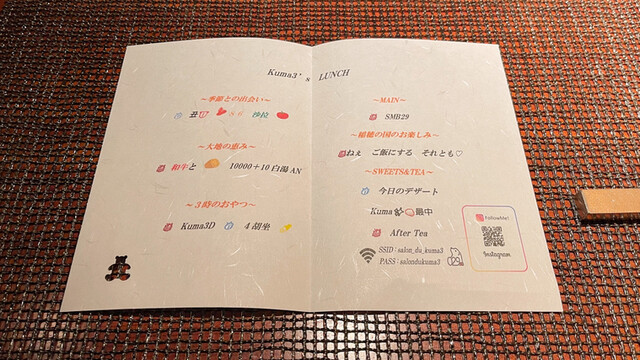 Kuma3's LUNCH
~季節との出会い~
丑 沙拉
~大地の恵み~
和牛と 10000+10白湯AN
~3時のおやつ~
Kuma3D 4胡坐
~MAIN~
SMB29
~稲穂の国のお楽しみ~
ねぇ ご飯にする それとも♡
~SWEETS&TEA~
今日のデザート
Kuma 最中
After Tea
SSID:salon_du_kuma3
PASS:salondukuma3
Follow Me!
Instagram